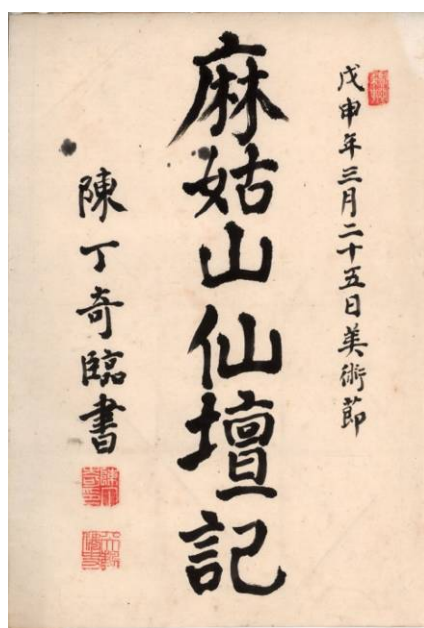 戊申年三月二十五日美術節
麻姑山仙壇記
陳丁奇臨書